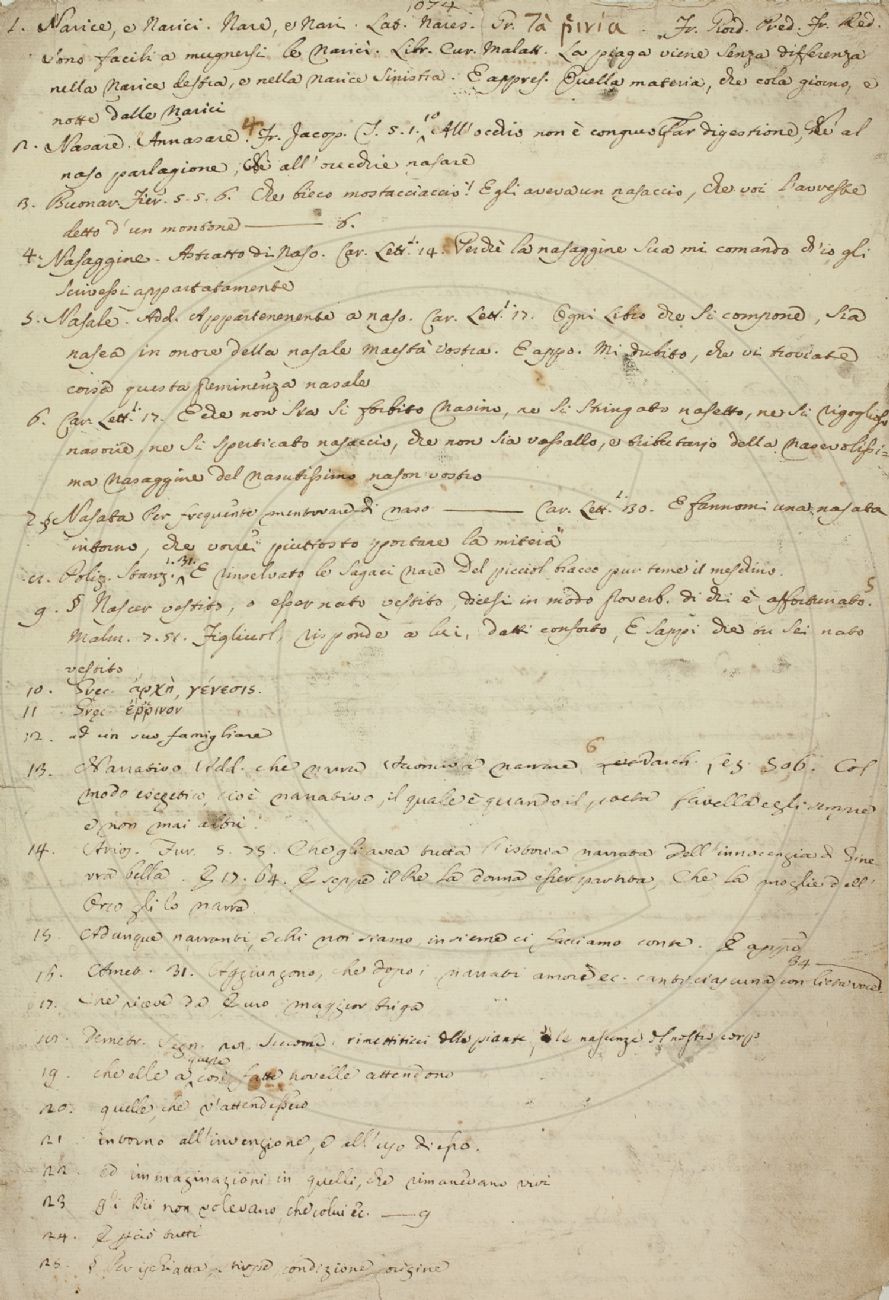 1074
1. Narice, e Narici. Nare, e Nari. Lat. Nares. Gr. Fr. Giord. Pred. Fr. Red.
Sono facili a mugnersi le Narici. Libr. Cur. Malatt. La piaga viene senza differenza
nella Narice destra, e nella Narice sinistra. E appres. Quella materia, che cola giorno, e
notte dalle Narici
2. Nasare. Annasare. 4 Fr. Jacop. T. 5. 1. 10 All' occhio non è congruo Far digestione, Nè al
naso parlagione, Nè all' orecchie nasare
3. Buonar. Fier. 5. 5. 6. Che bieco mostacciaccio! Egli aveva un nasaccio, che voi l'avreste
detto d'un montone 6.
4. Nasaggine. Astratto di Naso. Car. Lett. 1. 14. Perchè la nasaggine sua mi comandò ch'io gli
scrivessi appartatamente
5. Nasale. Add. Appartenenente a naso. Car. Lett. 1. 17. Ogni Libro che si compone, sia
nasea in onore della nasale Maestà vostra. E appo. Mi dubito, che vi troviate
costà questa feminenza nasale
6. Car. Lett. 1. 17. E che non sia si forbito Nasino, ne si stringato nasetto, ne si rigoglioso
nasone, ne si sperticato nasaccio, che non sia vassallo, e tributario della Nasevolissi=
ma Nasaggine del Nasutissimo nason vostro
7. § Nasata Per frequente mentovare di naso Car. Lett. 1. 130. E fannomi una nasata
intorno, che vorrei piuttosto portare la mitera
8. Poliz. Stanz. 1. 31. E rinselvato le sagaci Nare Del picciol bracco pur teme il meschino.
9. § Nascer vestito, o esser nato vestito, dicesi in modo Proverb. di chi è affortunato. 5
Malm. 7. 51. Figliuol, risponde a lui, datti conforto, E sappi che tu sei nato
vestito
10. Grec. ἀρχὴ, γένεσις.
11. Grec. ἔρρινον
12. ad un suo famigliare
13. Narrativo Add. che narra 6 Varch. Lez. 506. Col
modo esegetico, cioè narrativo, il quale è quando il poeta favella egli sempre
e non mai altri
14. Arios. Fur. 5. 75. Che gli avea tutta l'istoria narrata Dell' innocenzia di Gine
vra bella. E 17. 64. E seppe il Re la donna esser partita, Che la moglie dell'
Orco gli lo narra
15. Adunque narranti, e chi noi siamo, insieme ci facciamo conte. E appo
34
16. Amet. 31. Aggiungono, che dopo i narrati amori ec. canti ciascuna con lieta voce
17. Che riceve da maggior briga
18. Demetr. Segn. siccome rimettiticci delle piante, le nascenze del nostro corpo
19. che elle a queste così fatte novelle attendono
20. quelle, che v'attendessero
21. intorno all'invenzione, e all'uso di esso.
22. ed immaginazioni in quelli, che rimanevano vivi
23. gli Dii non volevano, che colui ec. 9
24. E perciò tutti
25. § Per ischiatta, stirpe, condizione, origine